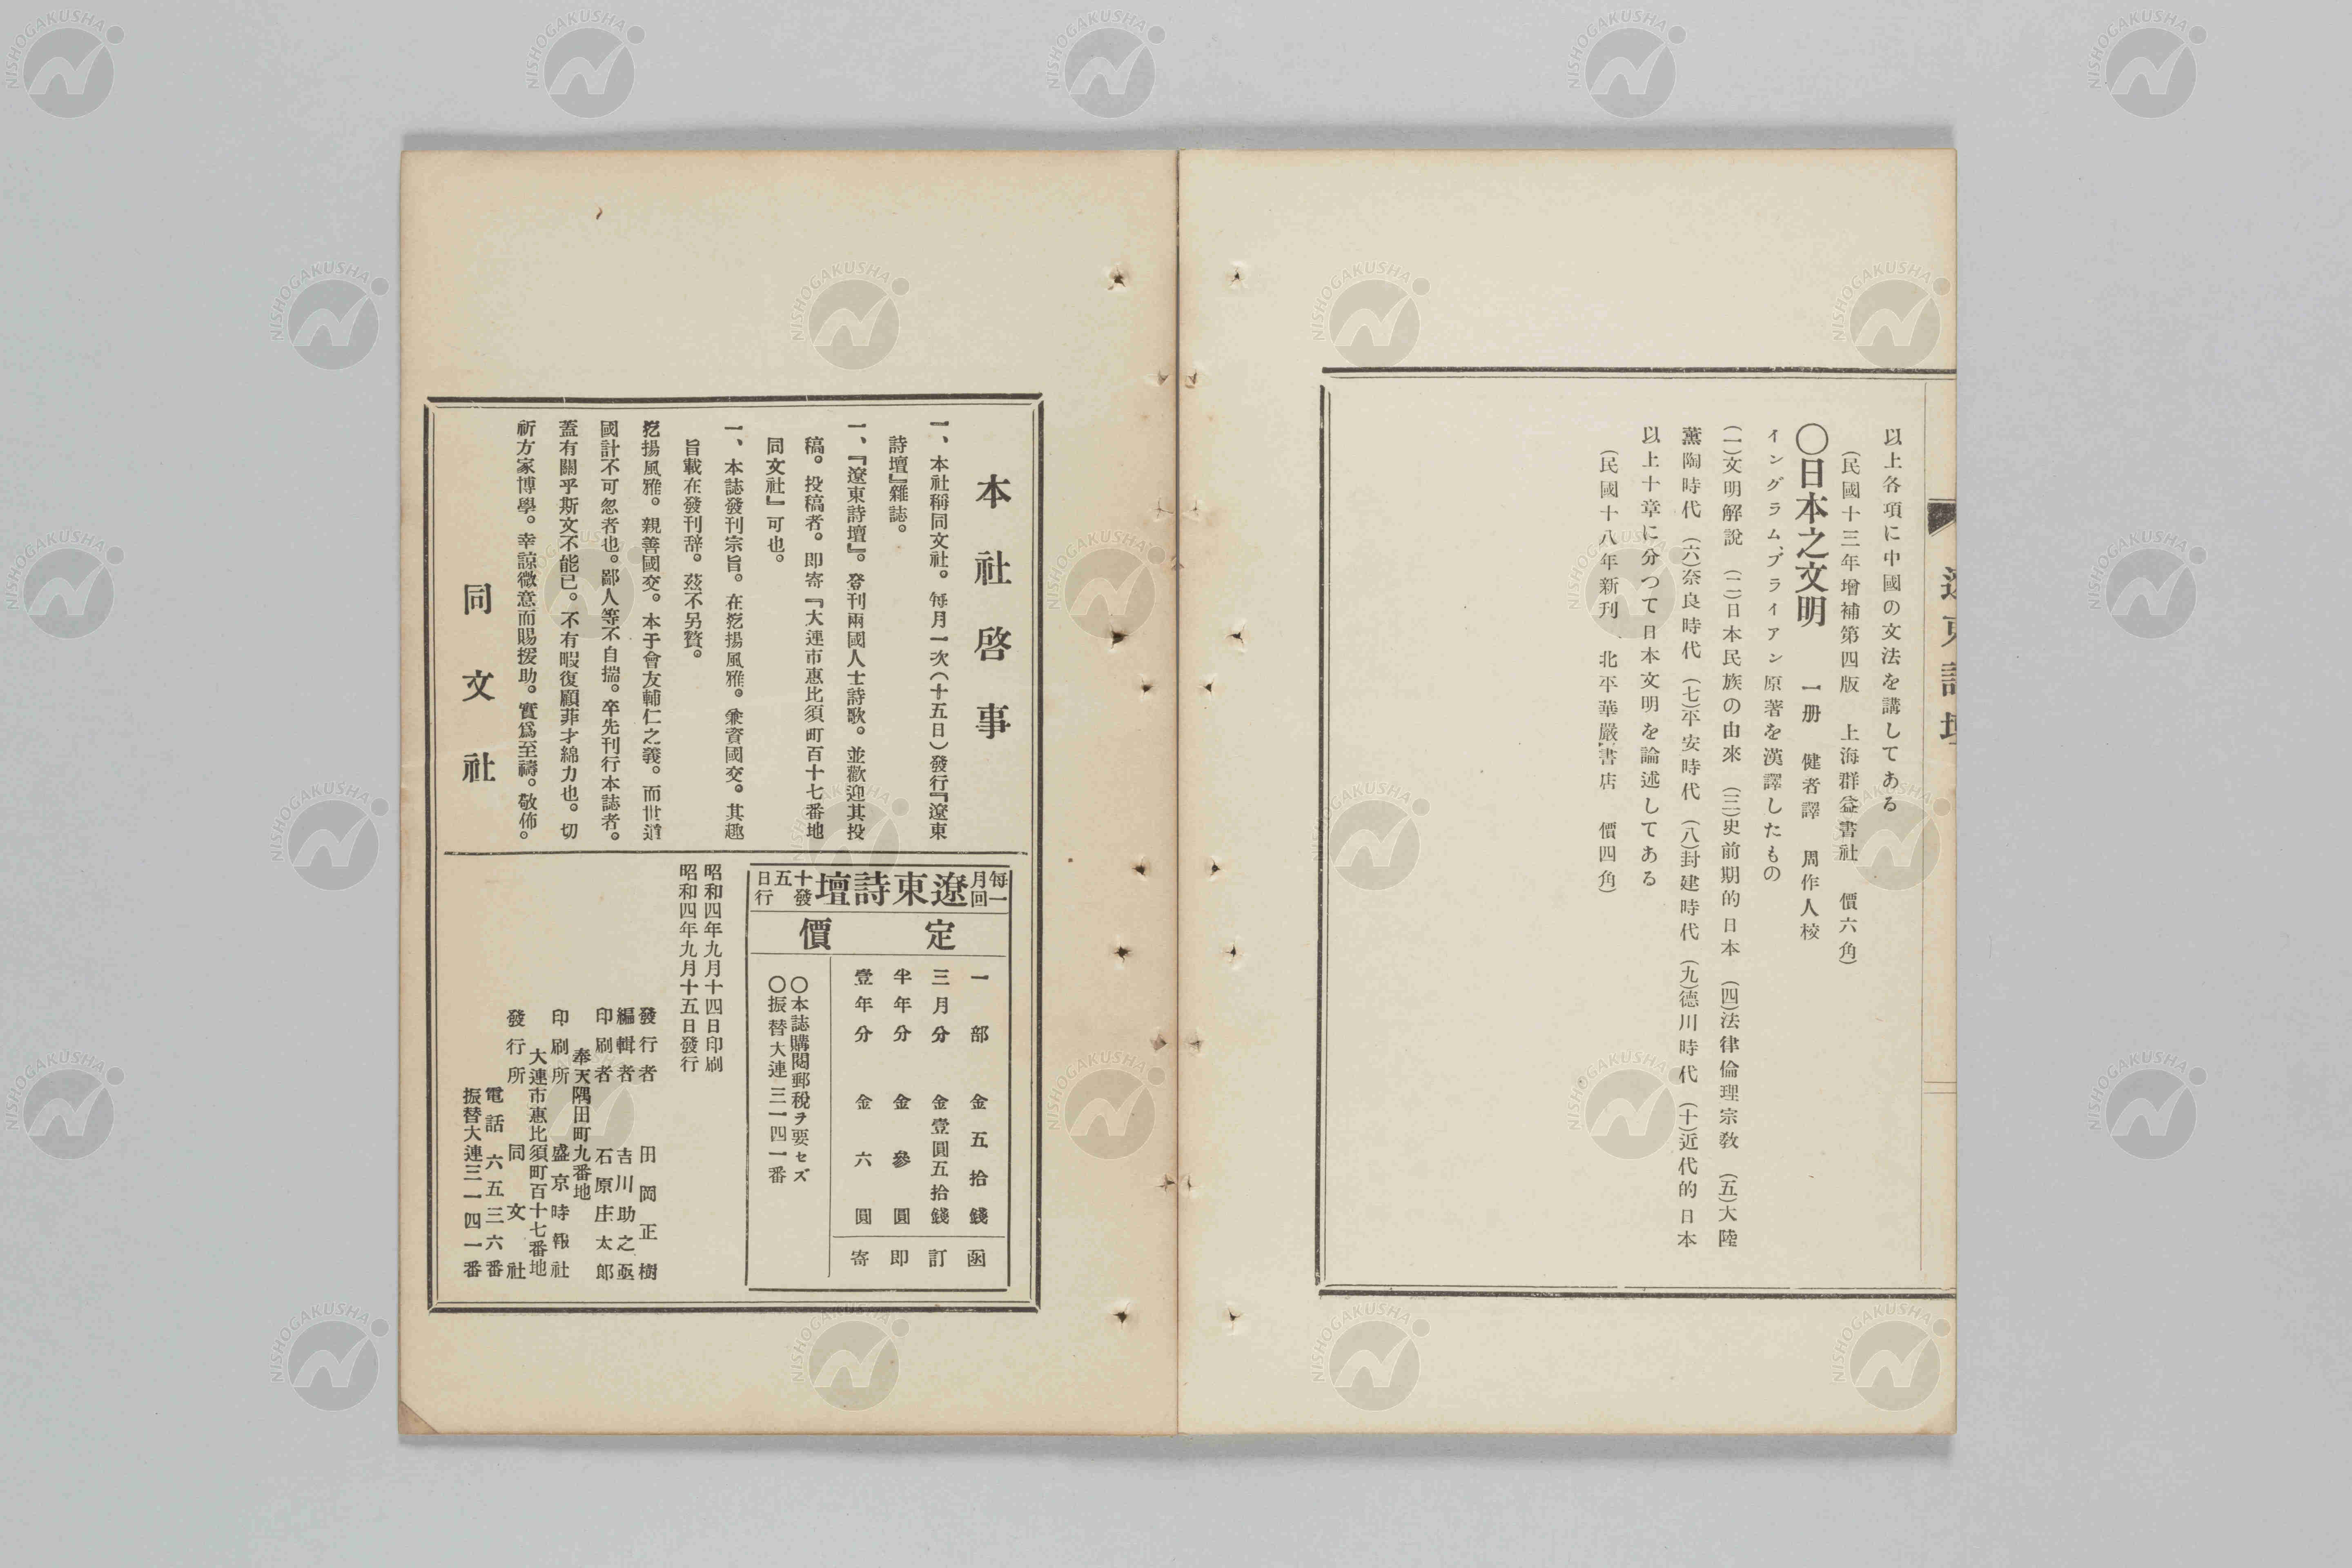 以上各項に中國の文法を講してある
(民國十三年增補第四版　上海群益書社　價六角)
〇日本之文明　一册　健者譯　周作人校
イングラム、ブライアン原著を漢譯したもの
(一)文明解說　(二)日本民族の由來　(三)史前期的日本　(四)法律倫理宗敎　(五)大陸
薰陶時代　(六)奈良時代　(七)平安時代　(八)封建時代　(九)德川時代　(十)近代的日本
以上十章に分つて日本文明を論述してある
(民國十八年新刊、北平華嚴書店　價四角)
本社啓事
一、本社稱同文社。每月一次(十五日)發行『遼東
詩壇』雜誌。
一、『遼東詩壇』。登刊兩國人士詩歌。並歡迎其投
稿。投稿者。即寄『大連市惠比須町百十七番地
同文社』可也。
一、本誌發刊宗旨。在扢揚風雅。兼資國交。其趣
旨載在發刊辞。玆不另贅。
扢揚風雅。親善國交。本于會友輔仁之義。而世道
國計不可忽者也。鄙人等不自揣。卒先刊行本誌者。
蓋有關乎斯文不能已。不有暇復顧菲才綿力也。切
祈方家博學。幸諒微意而賜援助。實爲至禱。敬佈。
同文社
每月一回
遼東詩壇
十五日發行
定價
一部　金五拾錢
三月分　金壹圓五拾錢
半年分　金參圓
壹年分　金六圓
函訂即寄
〇本誌購閱郵稅ヲ要セズ
〇振替大連三一四一番
昭和四年九月十四日印刷
昭和四年九月十五日發行
發行者　田岡正樹
編輯者　吉川助之亟
印刷者　石原庄太郎
奉天隅田町九番地
印刷所　盛京時報社
大連市惠比須町百十七番地
發行所　同文社
電話六五三六番
振替大連三一四一番
NISHOGAKUSHA